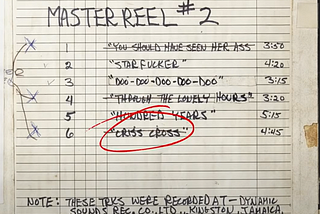 MASTER REEL #2
1 "YOU SHOULD HAVE SEEN HER ASS 3:50
2 "STARFUCKER" 4:20
3 "DOO-DOO-DOO-DOO-DOO" 3:15
4 "THROUGH THE LONELY HOURS" 3:20
5 "HUNDRED YEARS" 5:15
6 "CRISS CROSS" 4:45
NOTE: THESE TRKS WERE RECORDED AT - DYNAMIC
SOUNDS REC. CO., LTD., KINGSTON, JAMAICA,